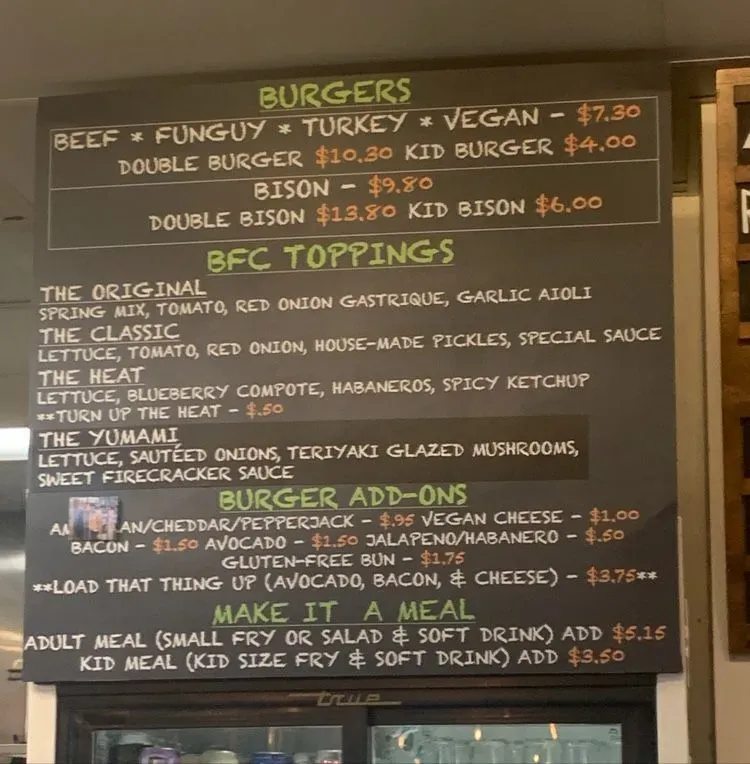 BURGERS
BEEF * FUNGUY * TURKEY * VEGAN - $7.30
DOUBLE BURGER $10.30 KID BURGER $4.00
BISON - $9.80
DOUBLE BISON $13.80 KID BISON $6.00
BFC TOPPINGS
THE ORIGINAL
SPRING MIX, TOMATO, RED ONION GASTRIQUE, GARLIC AIOLI
THE CLASSIC
LETTUCE, TOMATO, RED ONION, HOUSE-MADE PICKLES, SPECIAL SAUCE
THE HEAT
LETTUCE, BLUEBERRY COMPOTE, HABANEROS, SPICY KETCHUP
**TURN UP THE HEAT - $.50
THE YUMAMI
LETTUCE, SAUTÉED ONIONS, TERIYAKI GLAZED MUSHROOMS,
SWEET FIRECRACKER SAUCE
BURGER ADD-ONS
AN/CHEDDAR/PEPPERJACK - $.95 VEGAN CHEESE - $1.00
BACON - $1.50 AVOCADO - $1.50 JALAPENO/HABANERO - $.50
GLUTEN-FREE BUN - $1.75
**LOAD THAT THING UP (AVOCADO, BACON, & CHEESE) - $3.75**
MAKE IT A MEAL
ADULT MEAL (SMALL FRY OR SALAD & SOFT DRINK) ADD $5.15
KID MEAL (KID SIZE FRY & SOFT DRINK) ADD $3.50
true